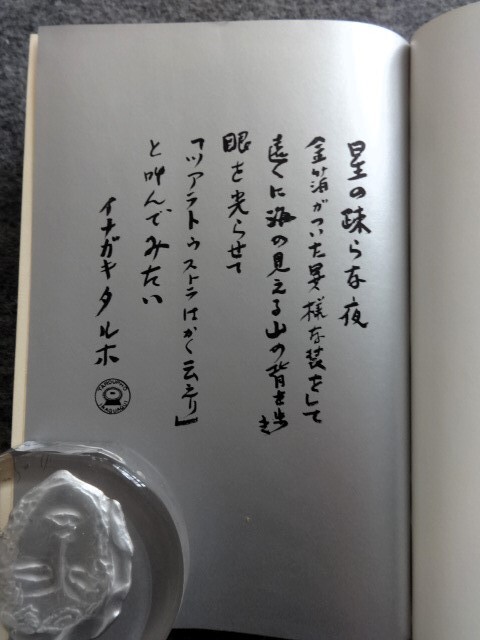 星の疎らな夜
金箔がついた異様な装をして
遠くに海の見える山の背を歩き
眼を光らせて
「ツアラトゥストラはかく云えり」
と叫んでみたい
イナガキタルホ
TAROUPHO
INAGAQUI